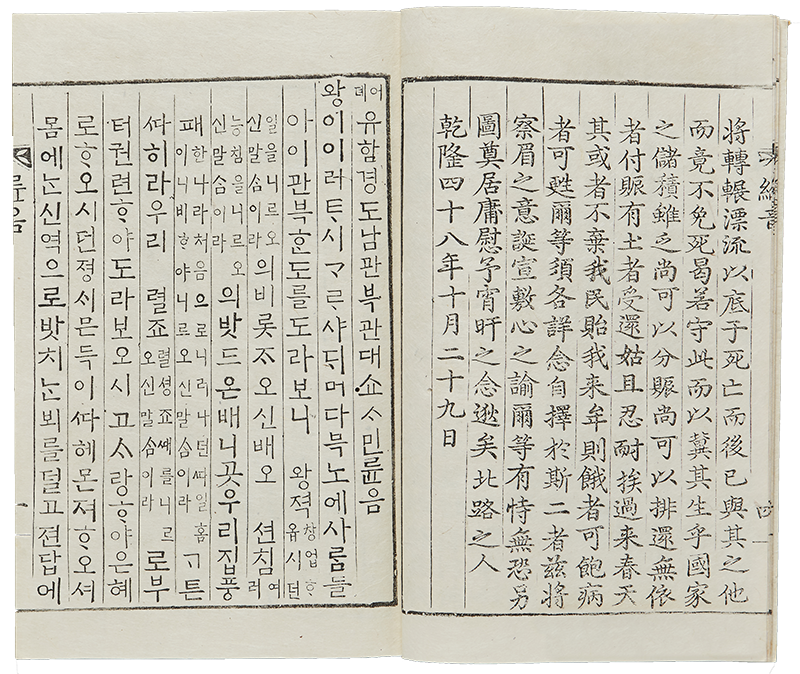 綸音 四
將轉輾漂流以底于死亡而後已與其之他
而竟不免死曷若守此而以冀其生乎國家
之儲積雖乏尚可以分賑尚可以排還無依
者付賑有土者受還姑且忍耐挨過来春天
其或者不棄我民貽我来牟則餓者可飽病
者可甦爾等須各詳念自擇於斯二者茲將
察眉之意誕宣敷心之諭爾等有恃無恐另
圖奠居庸慰予宵旰之念逖矣北路之人
乾隆四十八年十月二十九日
어졔유함경도남관븍관대쇼ᄉᆞ민륜음
왕이이러ᄐᆞ시ᄀᆞᄅᆞ샤ᄃᆡ머다븍노에사ᄅᆞᆷ들
아이관븍ᄒᆞᆫ도를도라보니 왕젹창업ᄒᆞ옵시던
일을니르오신말ᄉᆞᆷ이라의비롯ᄌᆞ오신배오 션침여러
능침을니르오신말ᄉᆞᆷ이라의밧드은배니곳우리집풍
패한나라처음으로니러나던ᄯᅡ일홈이니비ᄒᆞ야니르오신말ᄉᆞᆷ이라ᄀᆞ튼
ᄯᅡ히라우리 렬죠렬셩죠ᄶᅢ를니르오신말ᄉᆞᆷ이라로부
터권련ᄒᆞ야도라보오시고ᄉᆞ랑ᄒᆞ야은혜
로ᄒᆞ오시던졍시믄득이ᄯᅡ헤몬져ᄒᆞ오셔
몸에ᄂᆞᆫ신역으로밧치ᄂᆞᆫ뵈를덜고젼답에
륜음 一